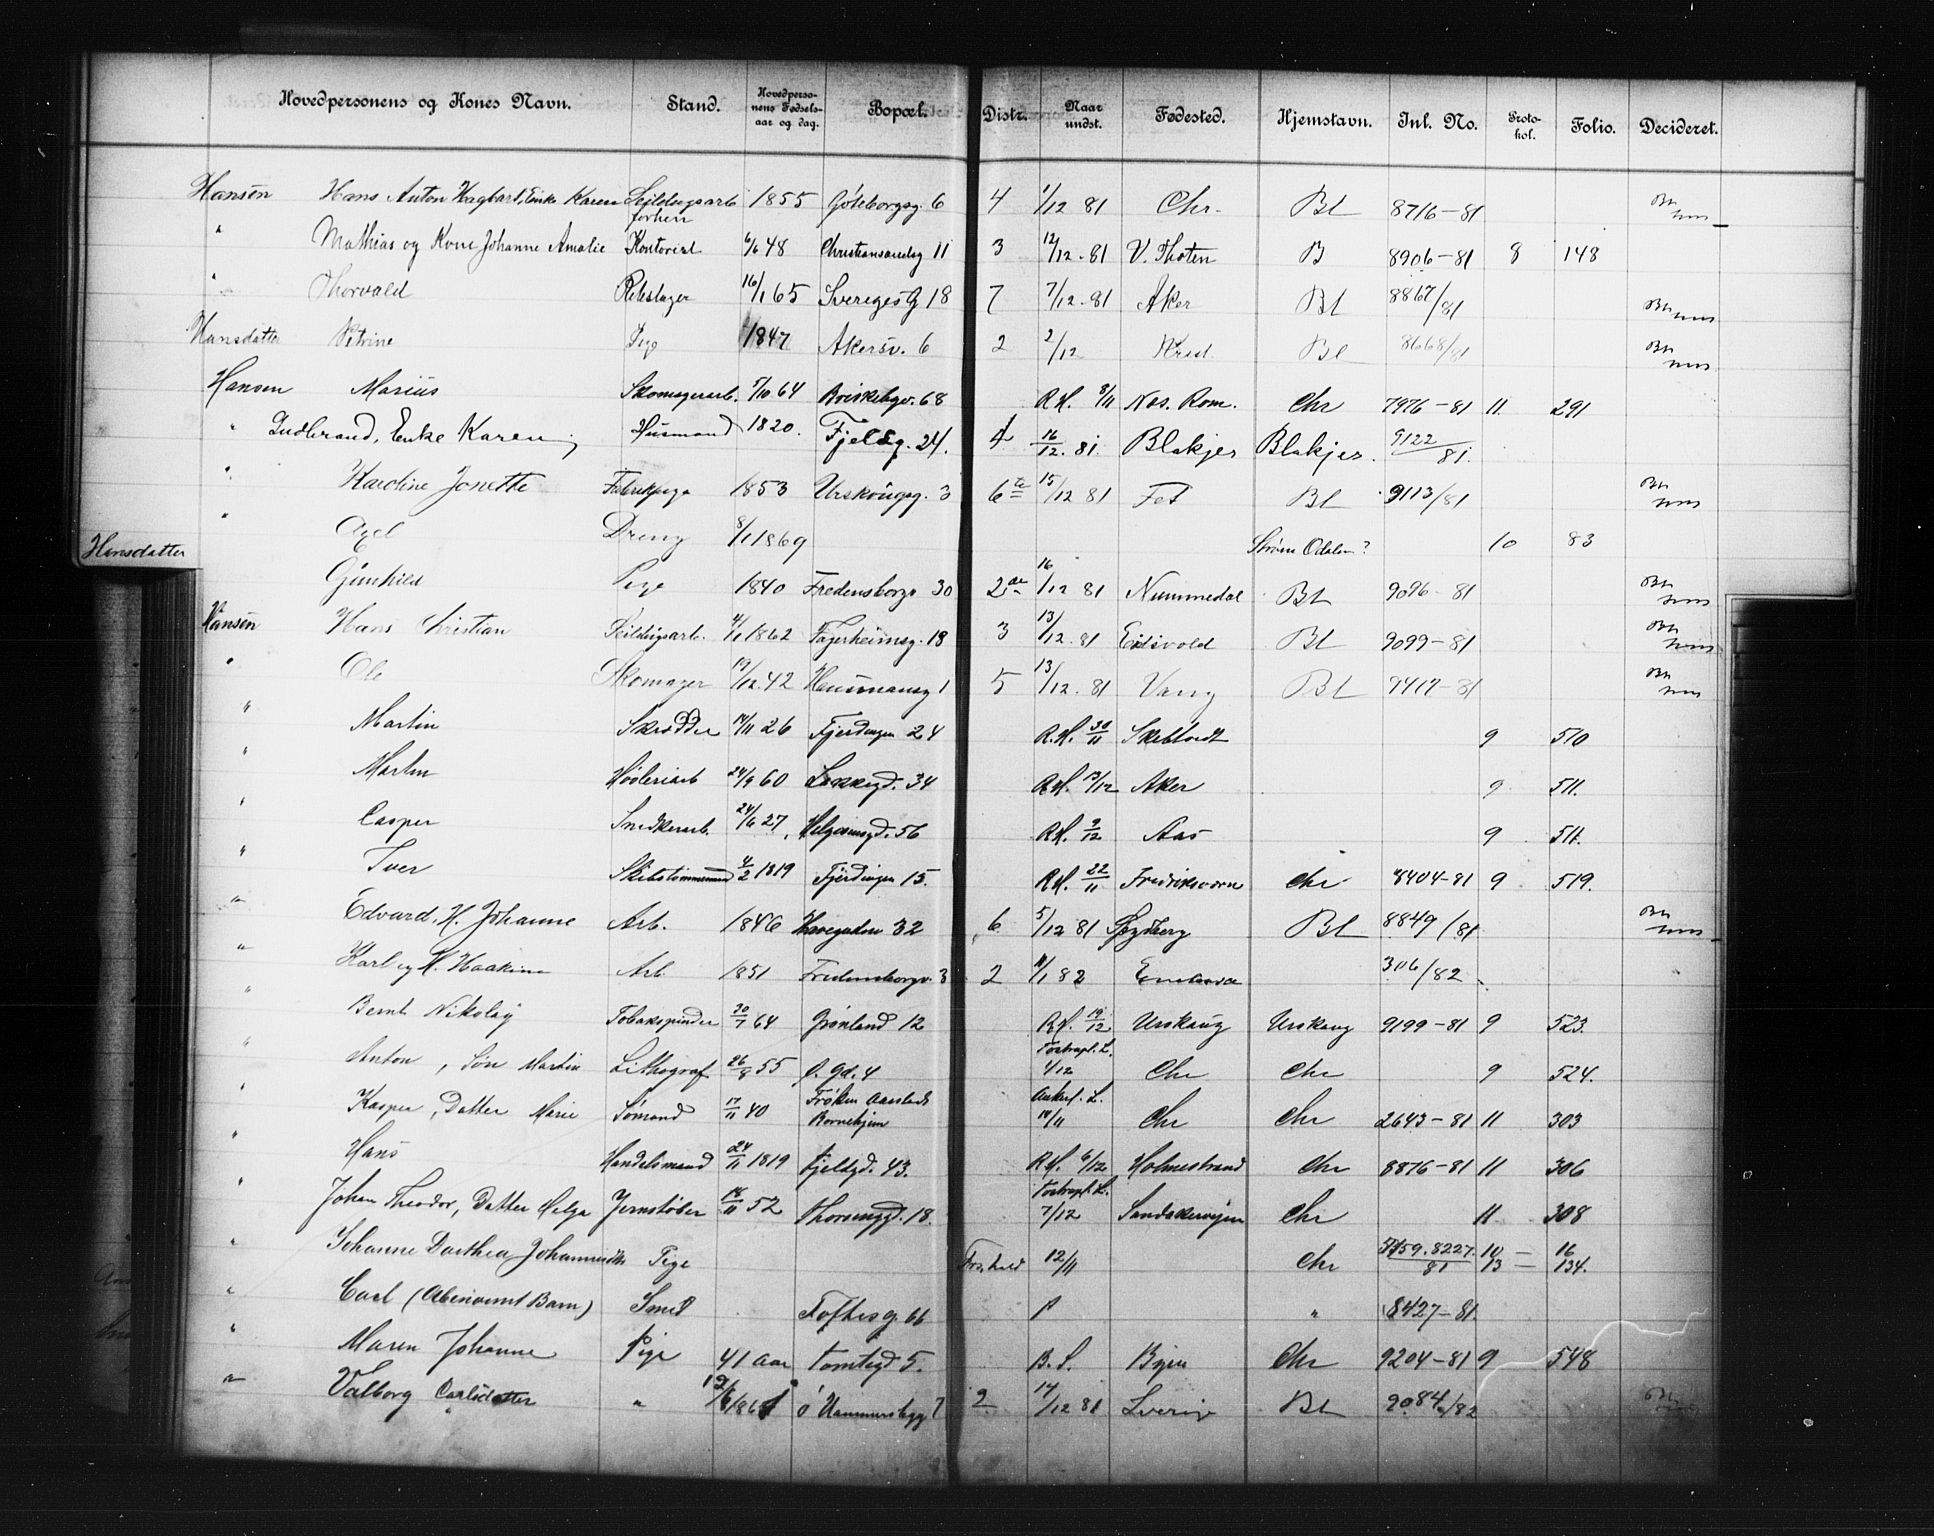 Hovedpersonens og Kones Navn. Stand. Hovedpersonens Fødselsaar og dag. Bopæl. Distr. Naar undst. Fødested. Hjemstavn. Inl. No. Protokol. Folio. Decideret.
Hansen Hans Anton Hagbart, Enke Karen forhen 1855 Göteborgsg. 6 4 1/12 81 Chr. Bl 8716-81
" Mathias og Kone Johanne Amalie Kontorist 6/6 48 Christiansandsg 11 3 12/12-81 V. Thoten B 8906-81 8 148
" Thorvald Rebslager 16/1 65 Sveriges G 18 7 7/12-81 Aker Bl 8867/81
Hansdatter Pige 1847 Akersv. 6 2 2/12 Bl 8668/81
Hansen Marius Skomagerarb. 5/10 64 68 R.H. 8/11 Nes. Rom. Chr 7976-81 11 291
" Gudbrand, Enke Karen Husmand 1820. Fjeldg. 24. 4 16/12. 81. Blakjer Blakjer. 9122/81.
" Karoline Jonette Fabrikpige 1853 Urskougsg. 3 6te 15/12 81 Fet Bl 9113/81
" Axel Dreng 8/1 1869 Strøm Odalen? 10 83
Hansdatter
Gunhild Pige 1840 Fredensborgv 30 2de 16/12 81 Nummedal Bl 9096-81
Hansen Hans Christian 1862 Fagerheimsg. 18 3 13/12. 81 Eidsvold Bl 9099-81
" Ole Skomager 19/12. 42 Hausmansg 1 5 13/12. 81 Vang Bl 9417-81
" Martin Skrædder 14/11 26 Fjerdingen 24 R.H. 30/11 9 510
" Martin Høvleriarb 24/9 60 Lakkegd. 34 R.H. 13/12 Aker 9 511.
" Casper Snedkerarb. 24/6 27 Helgesensgd. 56 R.H. 9/12 Aas 9 511.
" Iver Skibstømmermand 4/2 1819 Fjerdingen 15. R.H. 22/11 Fredriksværn Chr 8404-81 9 519.
" Edvard, H. Johanne Arb. 1846 Havegaden 32 6 5/12 81 Spydberg Bl 8849/81
" Karl og H. Haakine Arb 1851 Fredensborgv. 3 2 11/1 82 306/82
" Bernt Nikolay Tobakspinder 30/7 64 Grønland 12 R.H. 19/12 Urskaug Urskaug 9199-81 9 523.
" Anton, Søn Martin Lithograf 26/8 55 4 4/12 Chr Chr 9 524.
" Kasper, Datter Marie Sømand 17/11 40 Frøken Børnehjem 10/11 Chr Chr 2643-81 11 303
" Hans Handelsmand 24/11 1819 Fjeldgd. 43. R.H. 6/12 Holmestrand Chr 8876-81 11 306
" Johan Theodor, Datter Helga Jernstøber 18/11 52 18. 7/12 Chr 11 308
" Johanne Dorthea Johannesdtr Pige 12/11 Chr 5159. 8227./81 10/13 - 16/134.
" Carl (Ubenævnt Barn) Smed Toftesg. 66 " 8427-81.
" Maren Johanne Pige 41 aar Tomtegd 5. B.S. Byen Chr 9204-81 9 548
" Valborg Carlsdatter " 7 2 14/12 81 Sverig Bl 9084/82